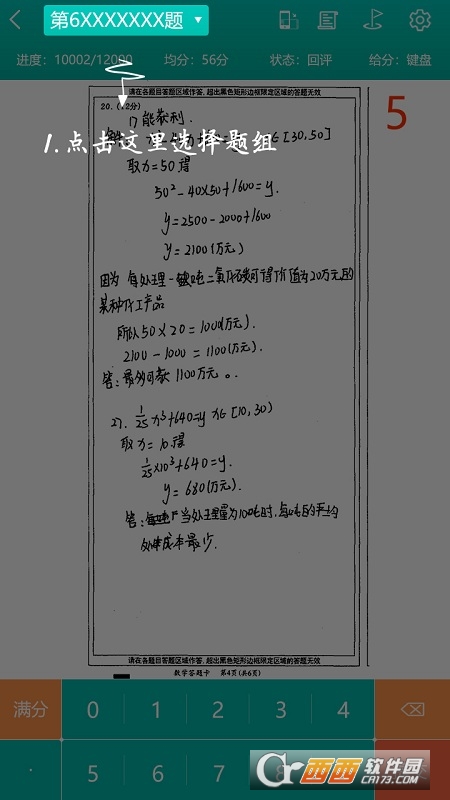 第6XXXXXXX题
进度：10002/12000 均分：56分 状态：回评 给分：键盘
请在各题目答题区域作答，超出黑色矩形边框限定区域的答题无效
20. (12分)
5
1) 能获利.
1.点击这里选择题组
∈[30,50]
取x=50得
50²-40×50+1600=y.
y=2500-2000+1600
y=2100(万元)
因为 每处理一吨二氧化碳可得价值为20万元的
某种化工产品
所以50×20=1000(万元).
2100-1000=1100(万元).
答：最多可获1100万元。
27. 1/25 x³+640=y x∈[10,30)
取x=10得
1/25×10³+640=y.
y=680(万元).
答：当处理量为100吨时，每吨的平均
处理成本最少.
请在各题目答题区域作答，超出黑色矩形边框限定区域的答题无效
数学答题卡 第4页(共6页)
满分 0 1 2 3 4
· 5 6 7 8
西西软件园
CR173.COM